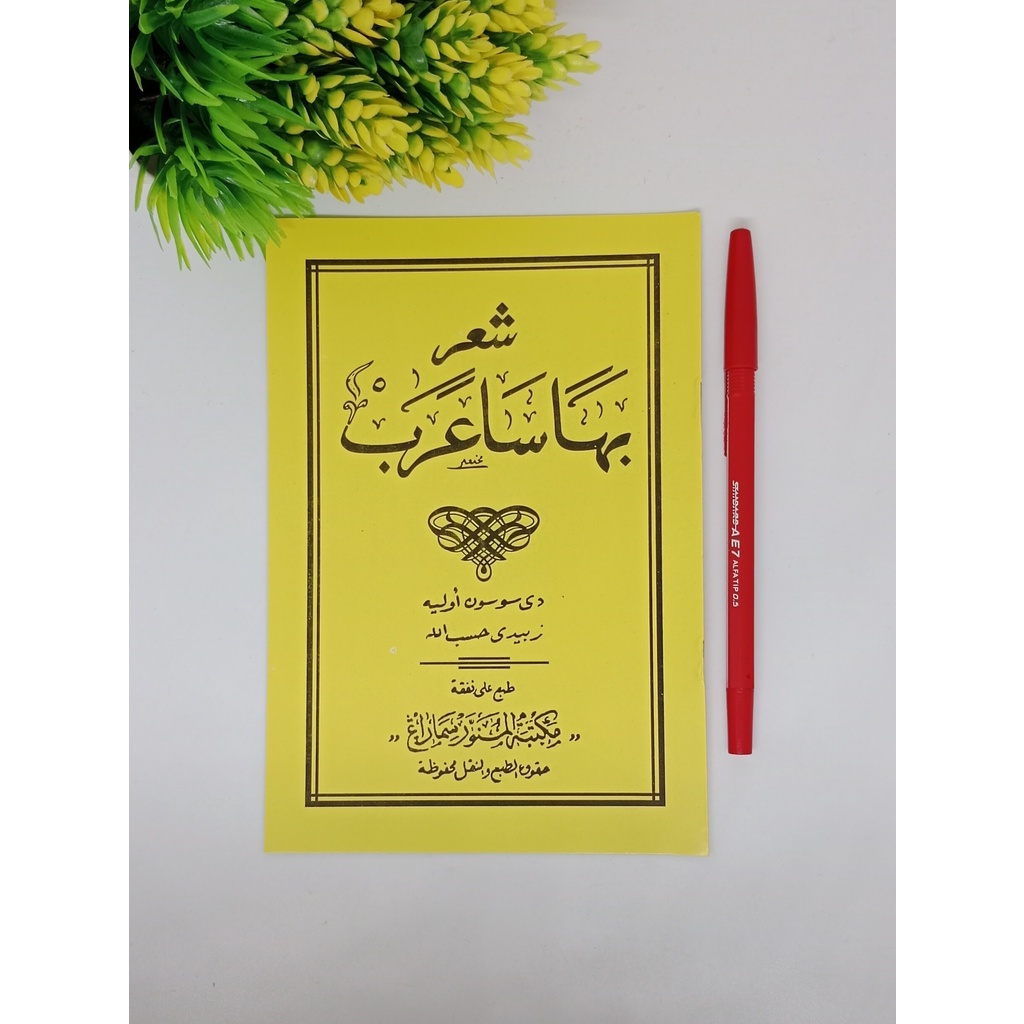 شعر
بهَاسَا عَرَبْ
دى سوسون أوليه
زبيدى حسب الله
طبع على نفقة
„ مكتبة المنوّر سماراڠ „
حقوق الطبع والنقل محفوظة
STANDARD AE7 ALFATIP 0.5